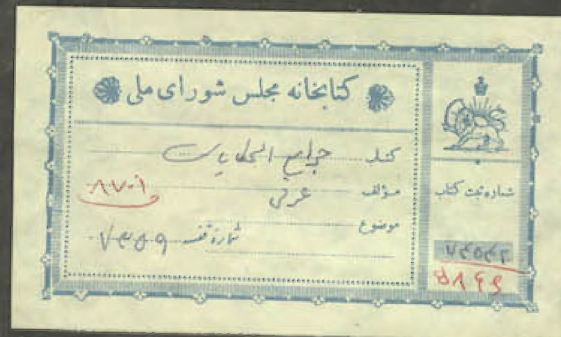 کتابخانه مجلس شورای ملی
کتاب جوامع الحکایات
مؤلف عوفی
۸۷۰۱
موضوع
شماره قفسه ۷۳۵۹
شماره ثبت کتاب